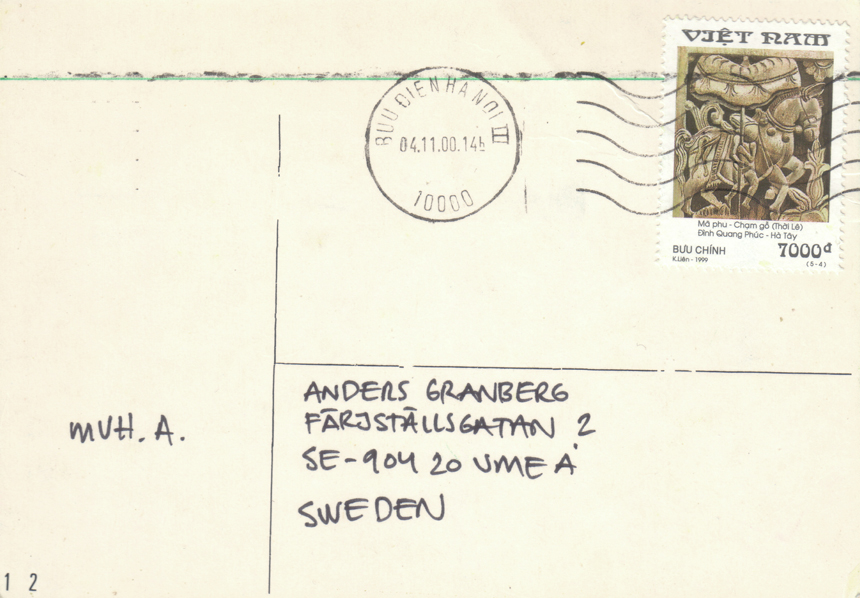 VIỆT NAM
BƯU ĐIỆN HÀ NỘI III
04.11.00.14h
10000
Mã phu - Chạm gỗ (Thời Lê)
Đình Quang Phúc - Hà Tây
BƯU CHÍNH 7000đ
K.Liên - 1999 (5-4)
MVH. A.
ANDERS GRANBERG
FÄRJSTÄLLSGATAN 2
SE-904 20 UMEÅ
SWEDEN
1 2